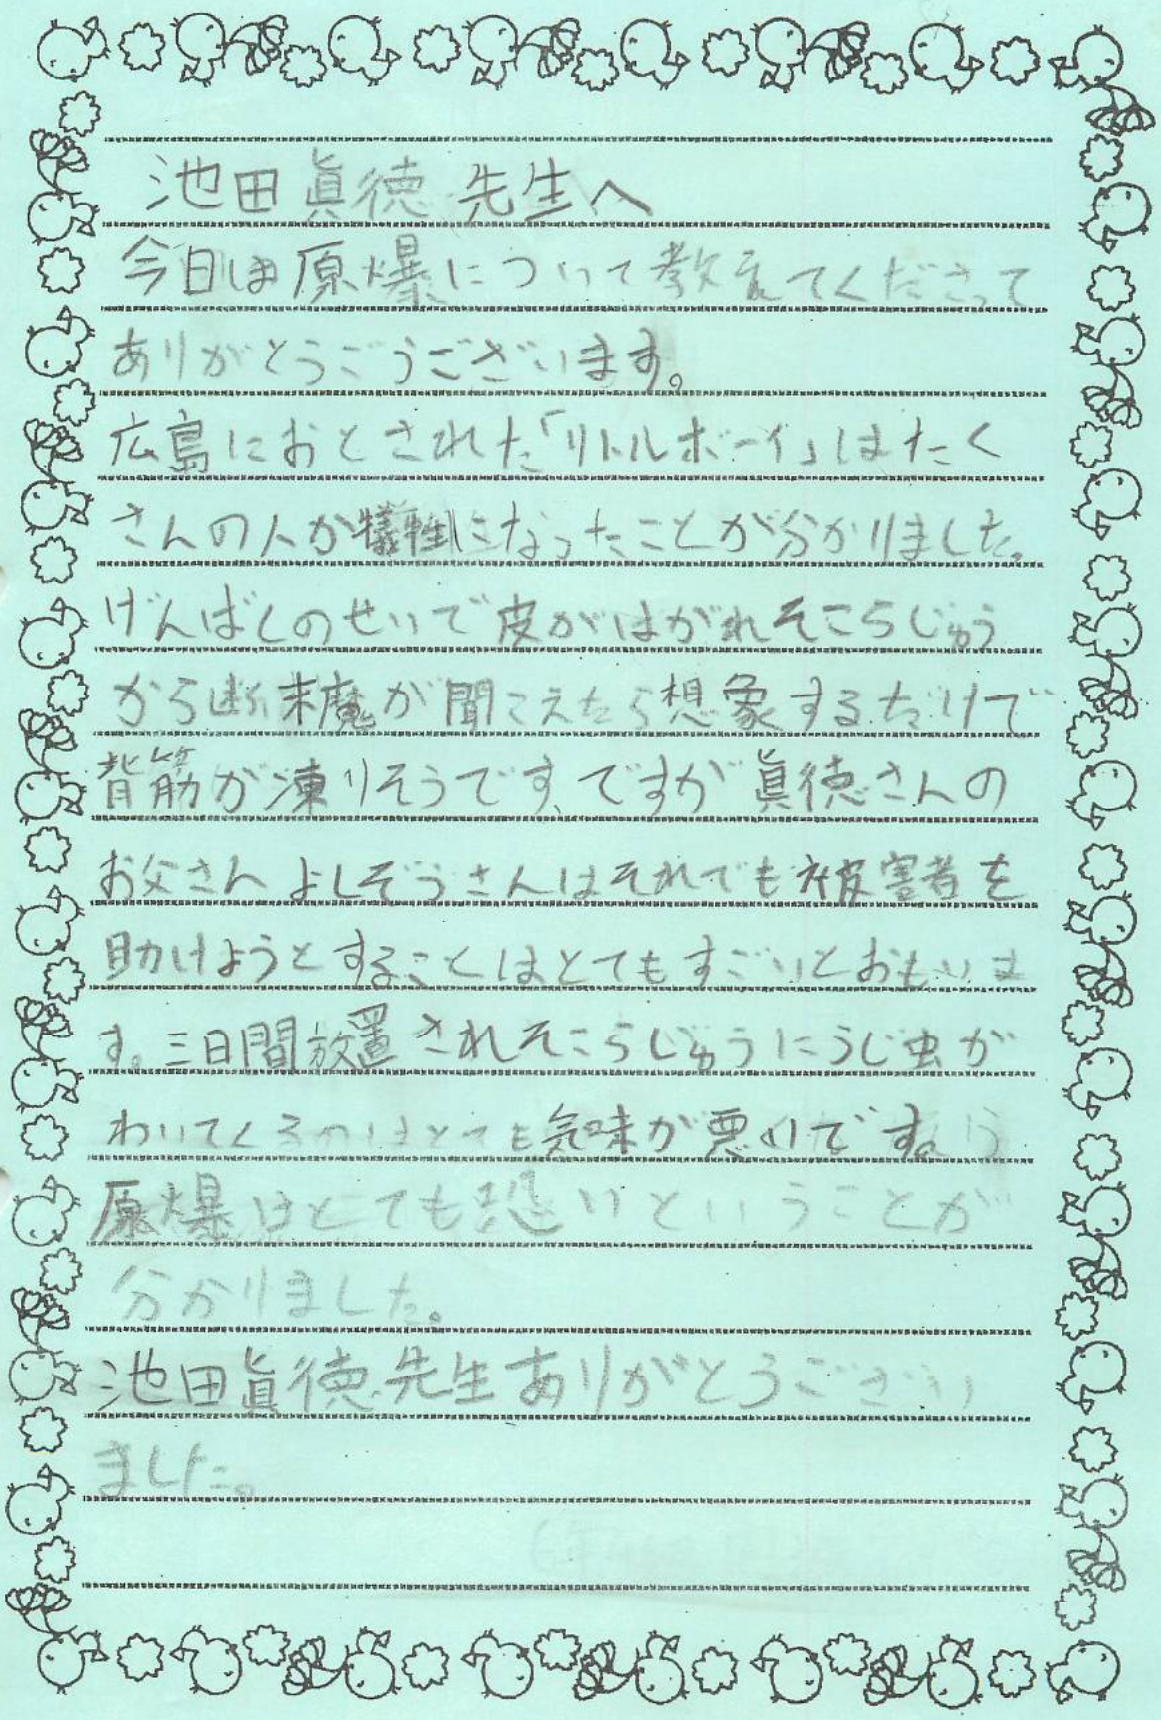 池田眞徳先生へ
今日は原爆について教えてくださって
ありがとうごうございます。
広島におとされた「リトルボーイ」はたく
さんの人が犠牲になったことが分かりました。
げんばくのせいで皮がはがれそこらじゅう
から断末魔が聞こえたら想象するだけで
背筋が凍りそうです、ですが眞徳さんの
お父さんよしぞうさんはそれでも被害者を
助けようとすることはとてもすごいとおもいま
す。三日間放置されそこらじゅうにうじ虫が
わいてくるのはとても気味が悪いです。
原爆はとても恐いということが
分かりました。
池田眞徳先生ありがとうござい
ました。